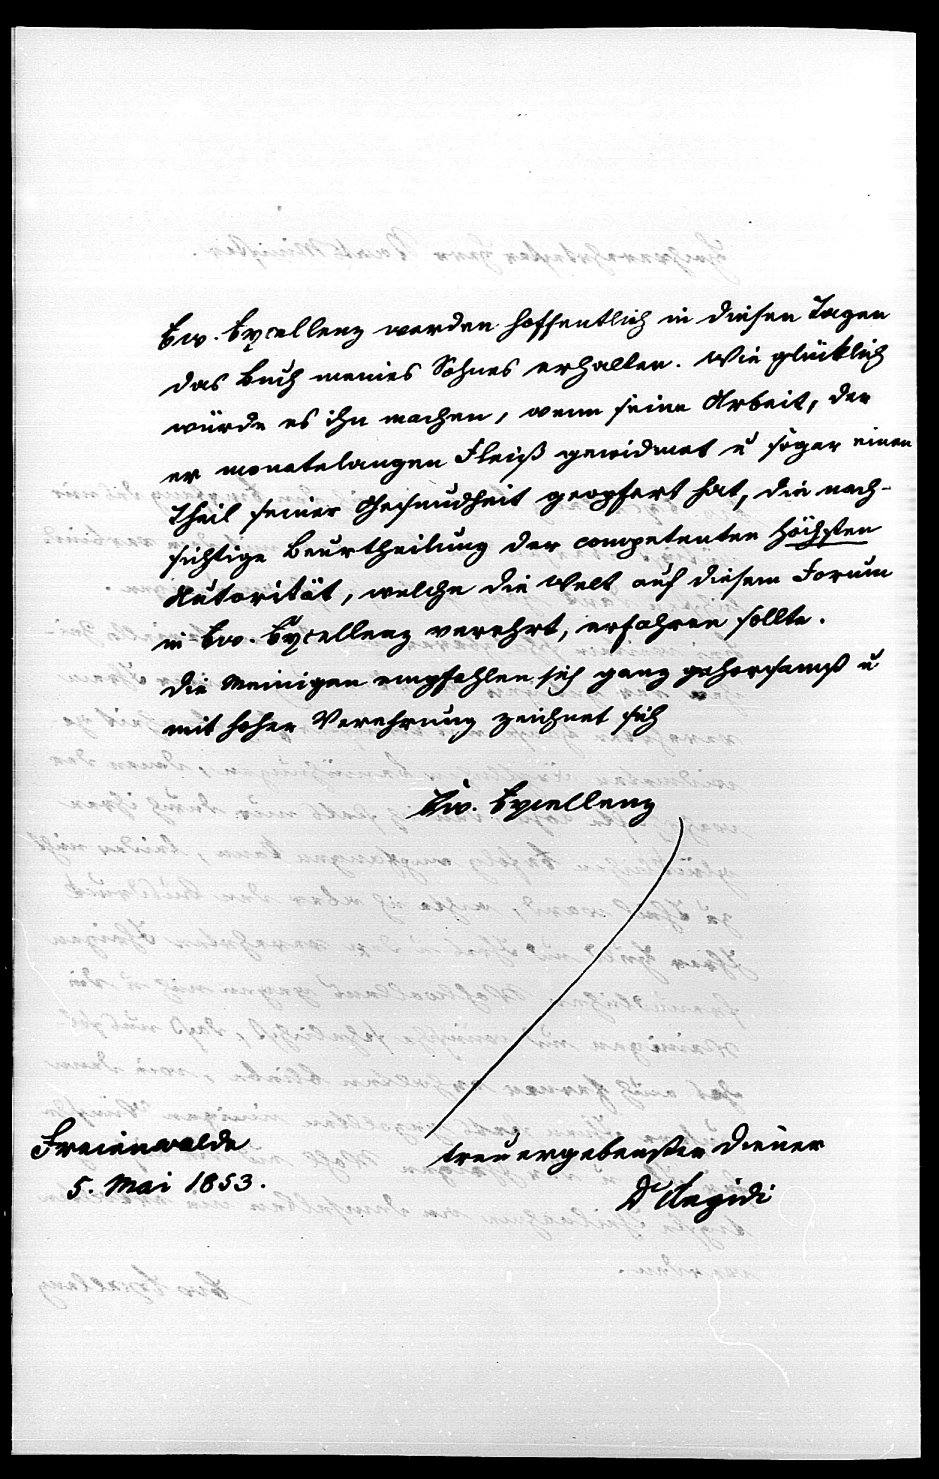 Ew. Excellenz werden hoffentlich in diesen Tagen
das Buch meines Sohnes erhalten. Wie glücklich
würde es ihn machen, wenn seine Arbeit, der
er monatelangen Fleiß gewidmet u sogar einen
Theil seiner Gesundheit geopfert hat, die nach-
sichtige Beurtheilung der competenten Höchsten
Autorität, welche die Welt auf diesem Forum
in Ew. Excellenz verehrt, erfahren sollte.
Die Meinigen empfehlen sich ganz gehorsamst u
mit hoher Verehrung zeichnet sich
Ew. Excellenz
Freienwalde
5. Mai 1853.
treuergebenster Diener
Dr Aegidi